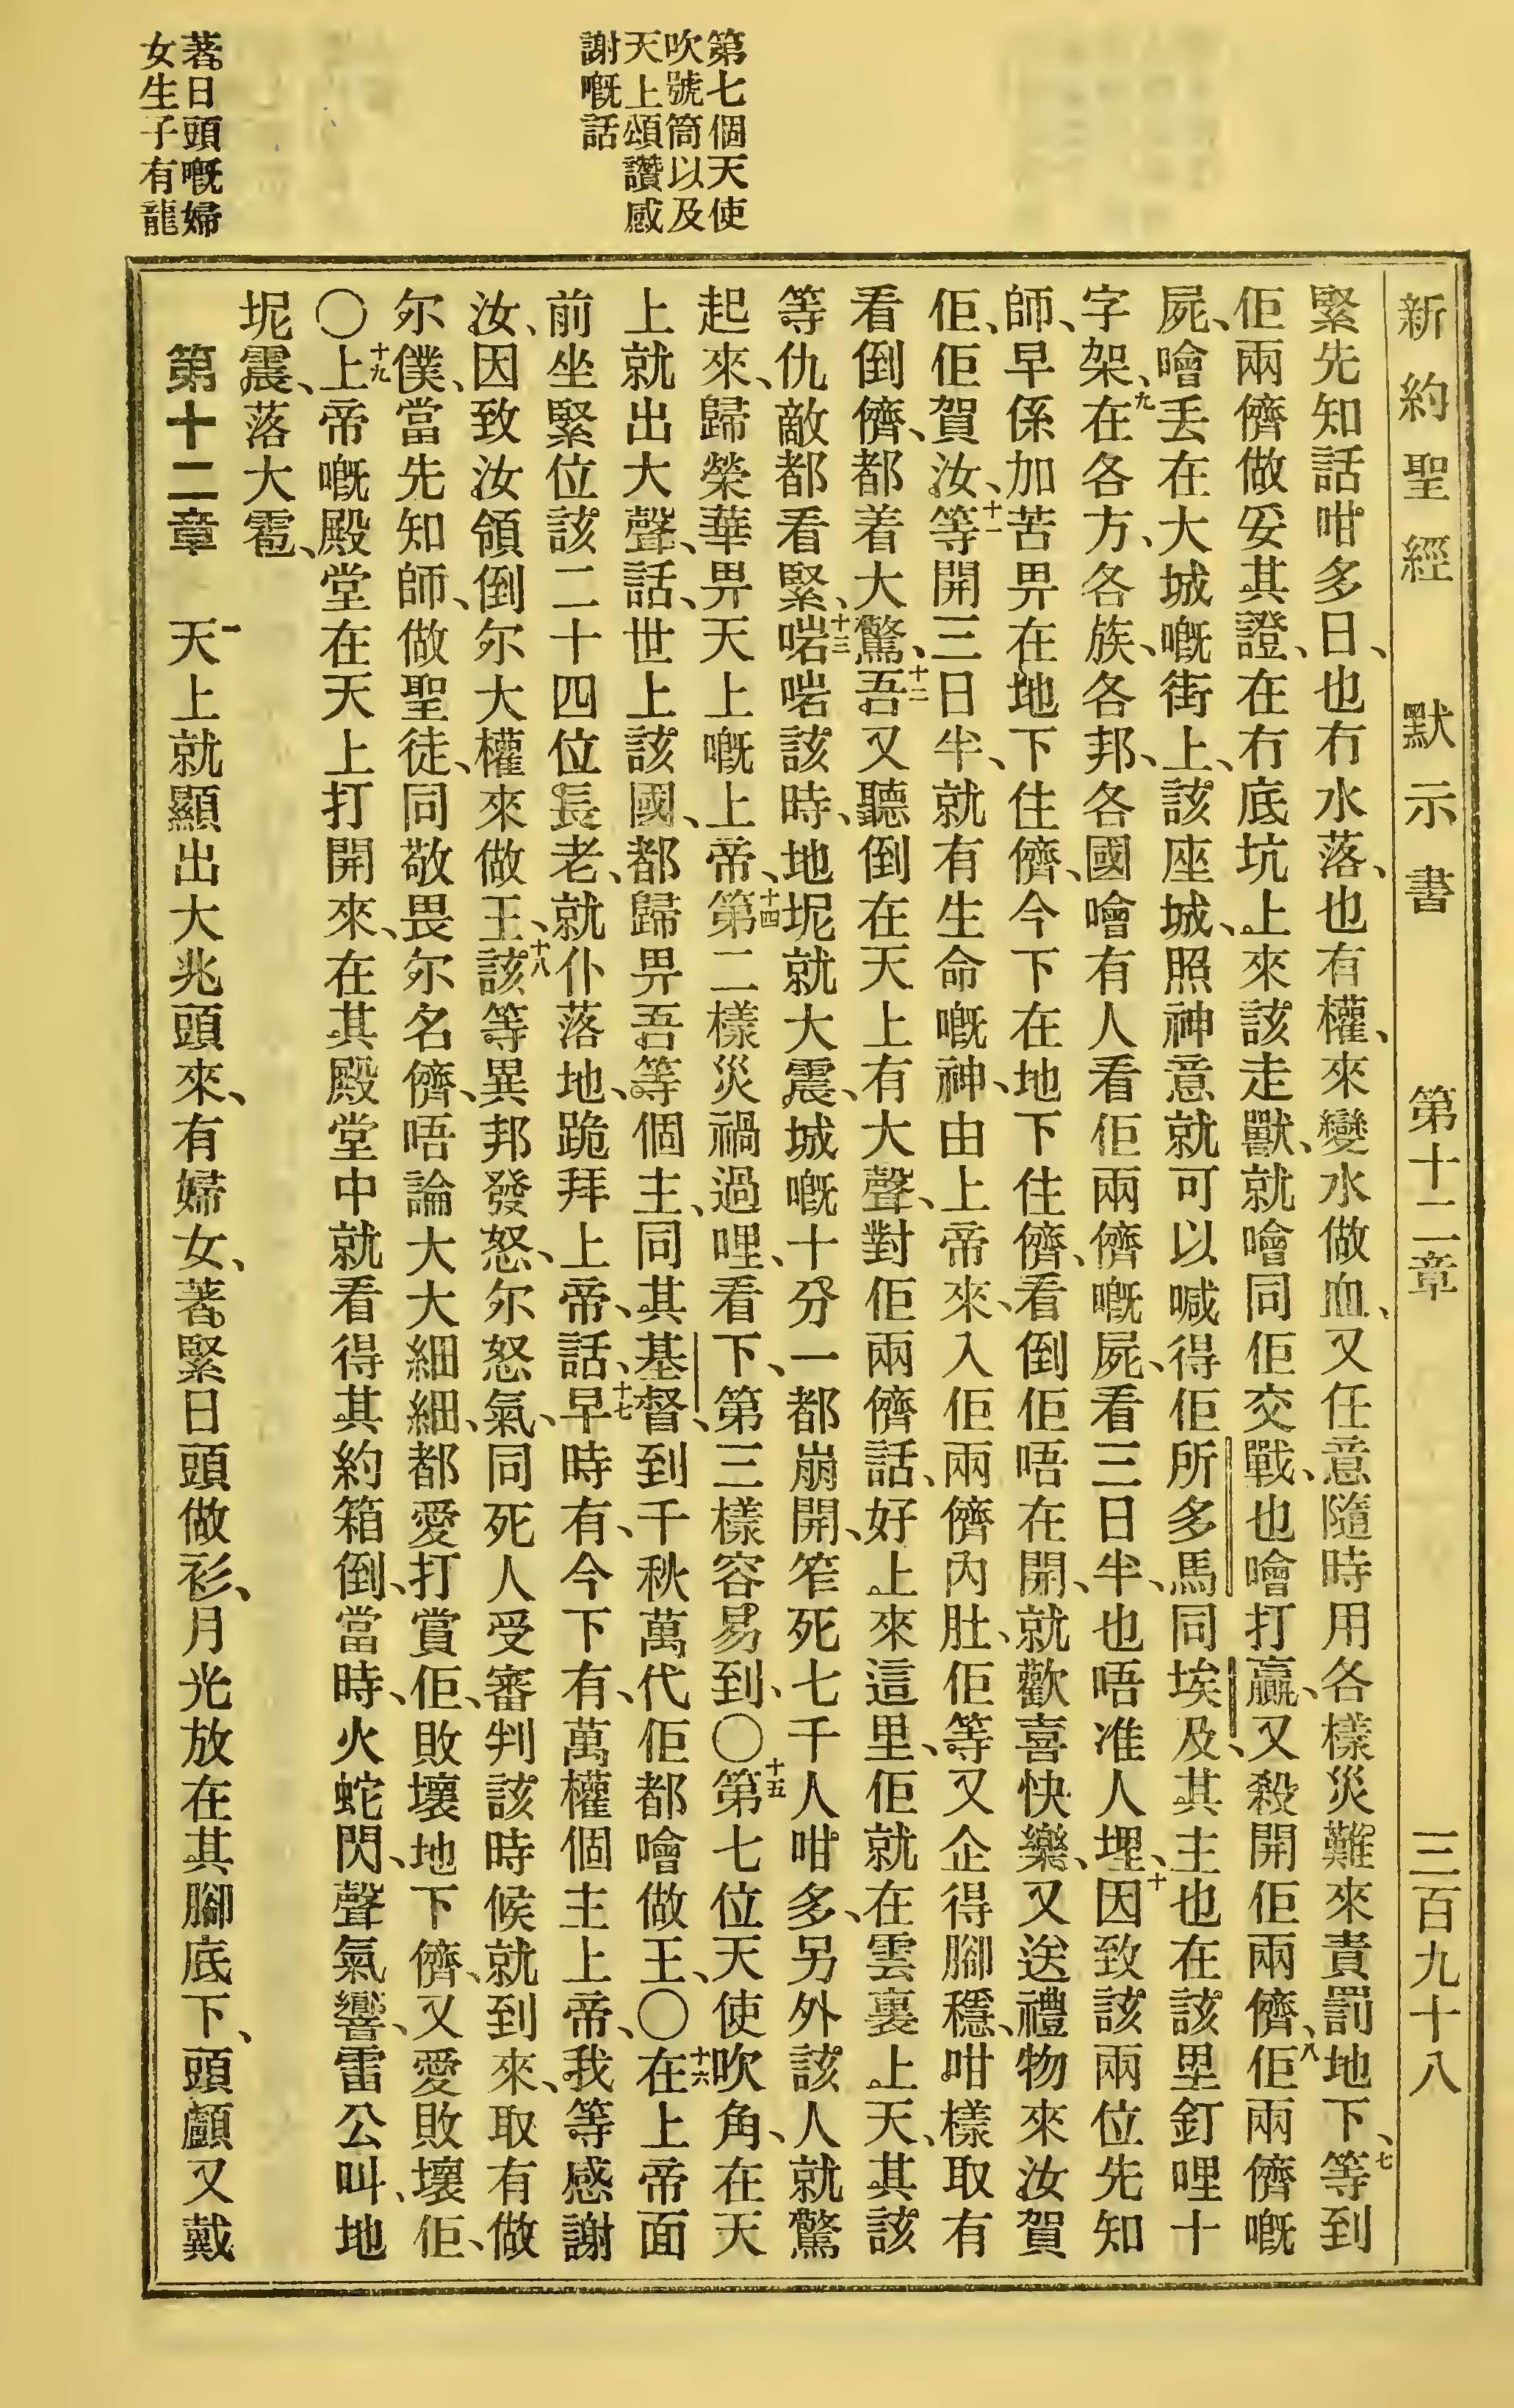 新約聖經 默示書 第十二章 三百九十八
緊先知話咁多日、也冇水落、也有權、來變水做血、又任意隨時用各樣災難來責罰地下、七等到
佢兩儕做妥其證、在冇底坑上來該走獸、就噲同佢交戰、也噲打贏、又殺開佢兩儕、八佢兩儕嘅
屍、噲丟在大城嘅街上、該座城、照神意就可以喊得佢所多馬同埃及、其主也在該里釘哩十
字架、九在各方、各族、各邦、各國噲有人看佢兩儕嘅屍、看三日半、也唔准人埋、十因致該兩位先知
師、早係加苦畀在地下住儕、今下在地下住儕、看倒佢唔在開、就歡喜快樂、又送禮物來汝賀
佢、佢賀汝、十一等開三日半、就有生命嘅神、由上帝來、入佢兩儕內肚、佢等又企得腳穩、咁樣取有
看倒儕、都着大驚、十二吾又聽倒在天上有大聲、對佢兩儕話、好上來這里、佢就在雲裏上天、其該
等仇敵都看緊、十三啱啱該時、地坭就大震、城嘅十分一都崩開、笮死七千人咁多、另外該人就驚
起來、歸榮華畀天上嘅上帝、十四第二樣災禍過哩、看下、第三樣容易到、〇十五第七位天使吹角、在天
上就出大聲、話、世上該國、都歸畀吾等個主、同其基督、到千秋萬代佢都噲做王、〇十六在上帝面
前坐緊位該二十四位長老、就仆落地、跪拜上帝、話、十七早時有、今下有、萬權個主上帝、我等感謝
汝、因致汝領倒尔大權來做王、十八該等異邦發怒、尔怒氣、同死人受審判該時候就到來、取有做
尔僕、當先知師、做聖徒、同敬畏尔名儕、唔論大大細細、都愛打賞佢、敗壞地下儕、又愛敗壞佢、
〇十九上帝嘅殿堂在天上打開來、在其殿堂中就看得其約箱倒、當時、火蛇閃、聲氣響、雷公叫、地
坭震、落大雹、
第十二章 一天上就顯出大兆頭來、有婦女、著緊日頭做衫、月光放在其腳底下、頭顱又戴
第七個天使
吹號筒以及
天上頌讚感
謝嘅話
著日頭嘅婦
女生子有龍